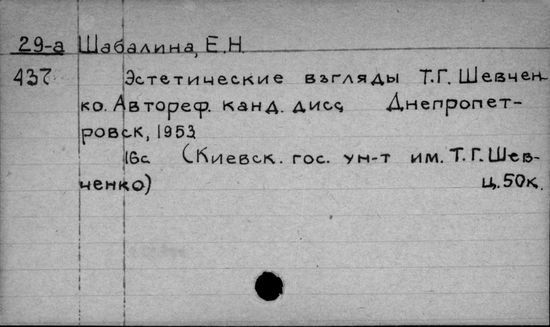 29-а Шабалина, Е.Н.
437 Эстетические взгляды Т.Г. Шевчен-
ко. Автореф. канд. дисс. Днепропет-
ровск, 1953
16с (Киевск. гос. ун-т им. Т.Г. Шев-
ченко) ц. 50к.